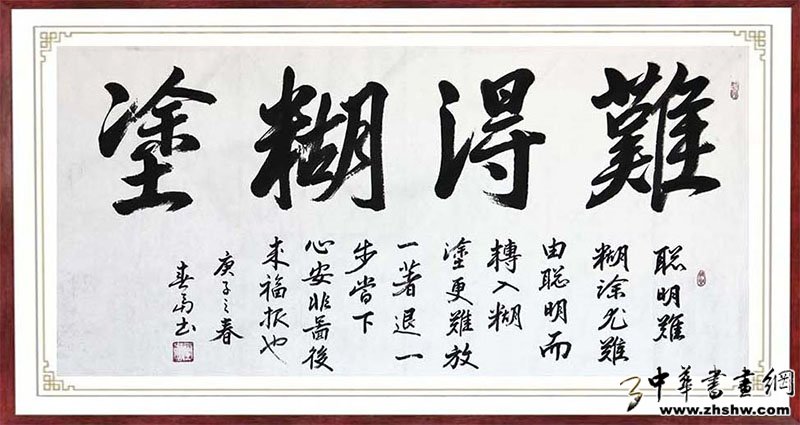 難得糊塗
聪明難
糊涂尤難
由聪明而
轉入糊
塗更難放
一著退一
步當下
心安非圖後
来福报也
庚子之春
书
中華書畫網
www.zhshw.com